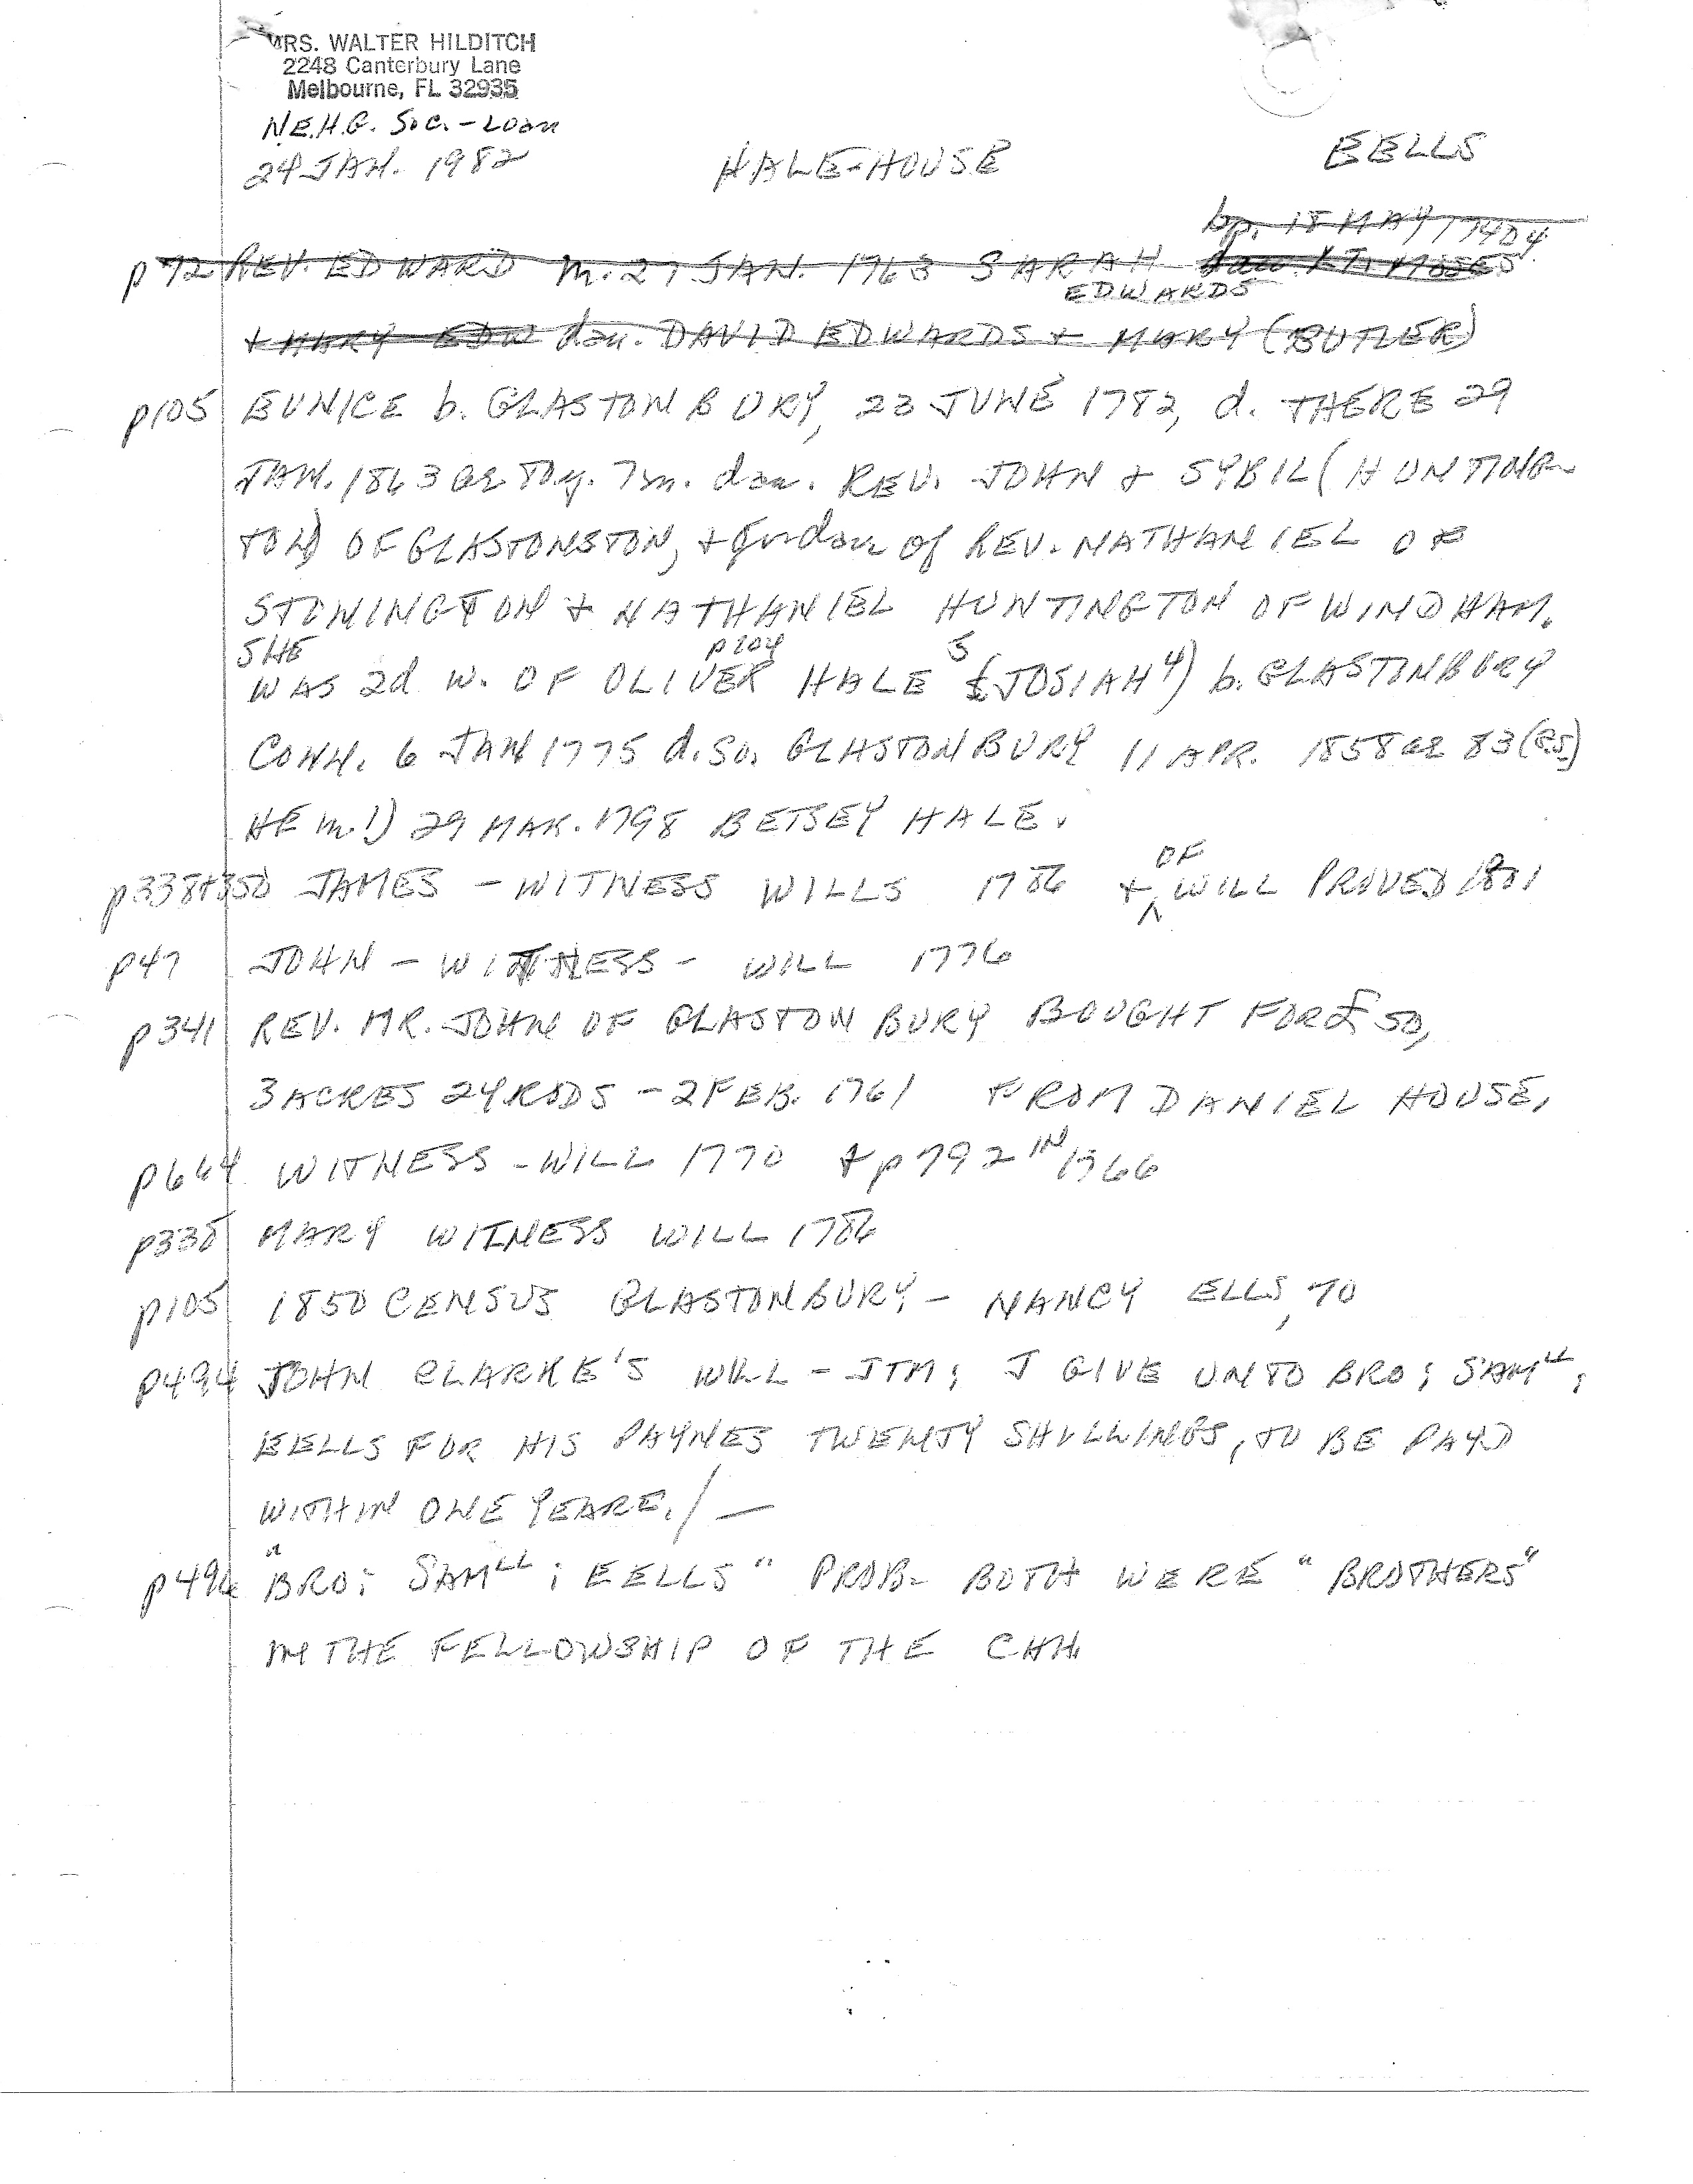 MRS. WALTER HILDITCH
2248 Canterbury Lane
Melbourne, FL 32935
N.E.H.G. Soc. - Loan
24 JAN. 1982 HALE-HOUSE EELLS
bp. 18 MAY 17404.
p 72 REV. EDWARD m. 27 JAN. 1763 SARAH dau. MOSES
EDWARDS
+ MARY EDW dau. DAVID EDWARDS + MARY (BUTLER)
p105 EUNICE b. GLASTONBURY, 23 JUNE 1782, d. THERE 29
JAN. 1863 ae 80y. 7m. dau. REV. JOHN + SYBIL (HUNTING-
TON) OF GLASTONSTON, + grndau of REV. NATHANIEL OF
STONINGTON + NATHANIEL HUNTINGTON OF WINDHAM.
SHE p204 5
WAS 2d w. OF OLIVER HALE (JOSIAH4) b. GLASTINBURY
CONN. 6 JAN 1775 d. So. GLASTONBURY 11 APR. 1858 ae 83 (GS)
HE m. 1) 29 MAR. 1798 BETSEY HALE.
OF
p338+350 JAMES - WITNESS WILLS 1786 + ^ WILL PROVED 1801
p47 JOHN - WITNESS - WILL 1776
p341 REV. MR. JOHN OF GLASTONBURY BOUGHT FOR £50,
3 ACRES 24 RODS - 2 FEB. 1761 FROM DANIEL HOUSE,
p644 WITNESS - WILL 1770 + p792 IN 1766
p338 MARY WITNESS WILL 1786
p105 1850 CENSUS GLASTONBURY - NANCY ELLS, 70
p494 JOHN CLARKE'S WILL - ITM; I GIVE UNTO BRO; SAMLL;
EELLS FOR HIS PAYNES TWENTY SHILLINGS, TO BE PAYD
WITHIN ONE YEARE./ —
p496 "BRO; SAMLL; EELLS" PROB. BOTH WERE "BROTHERS"
IN THE FELLOWSHIP OF THE CHH.